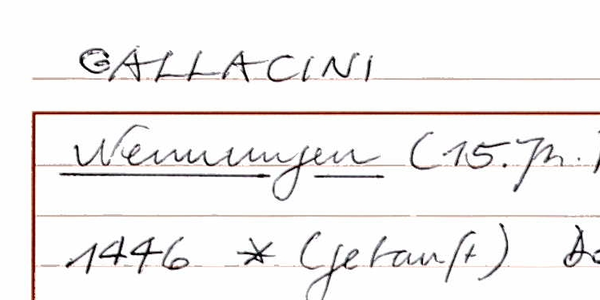 GALLACINI
Nennungen (15.Jh.)
1446 * (getauft)